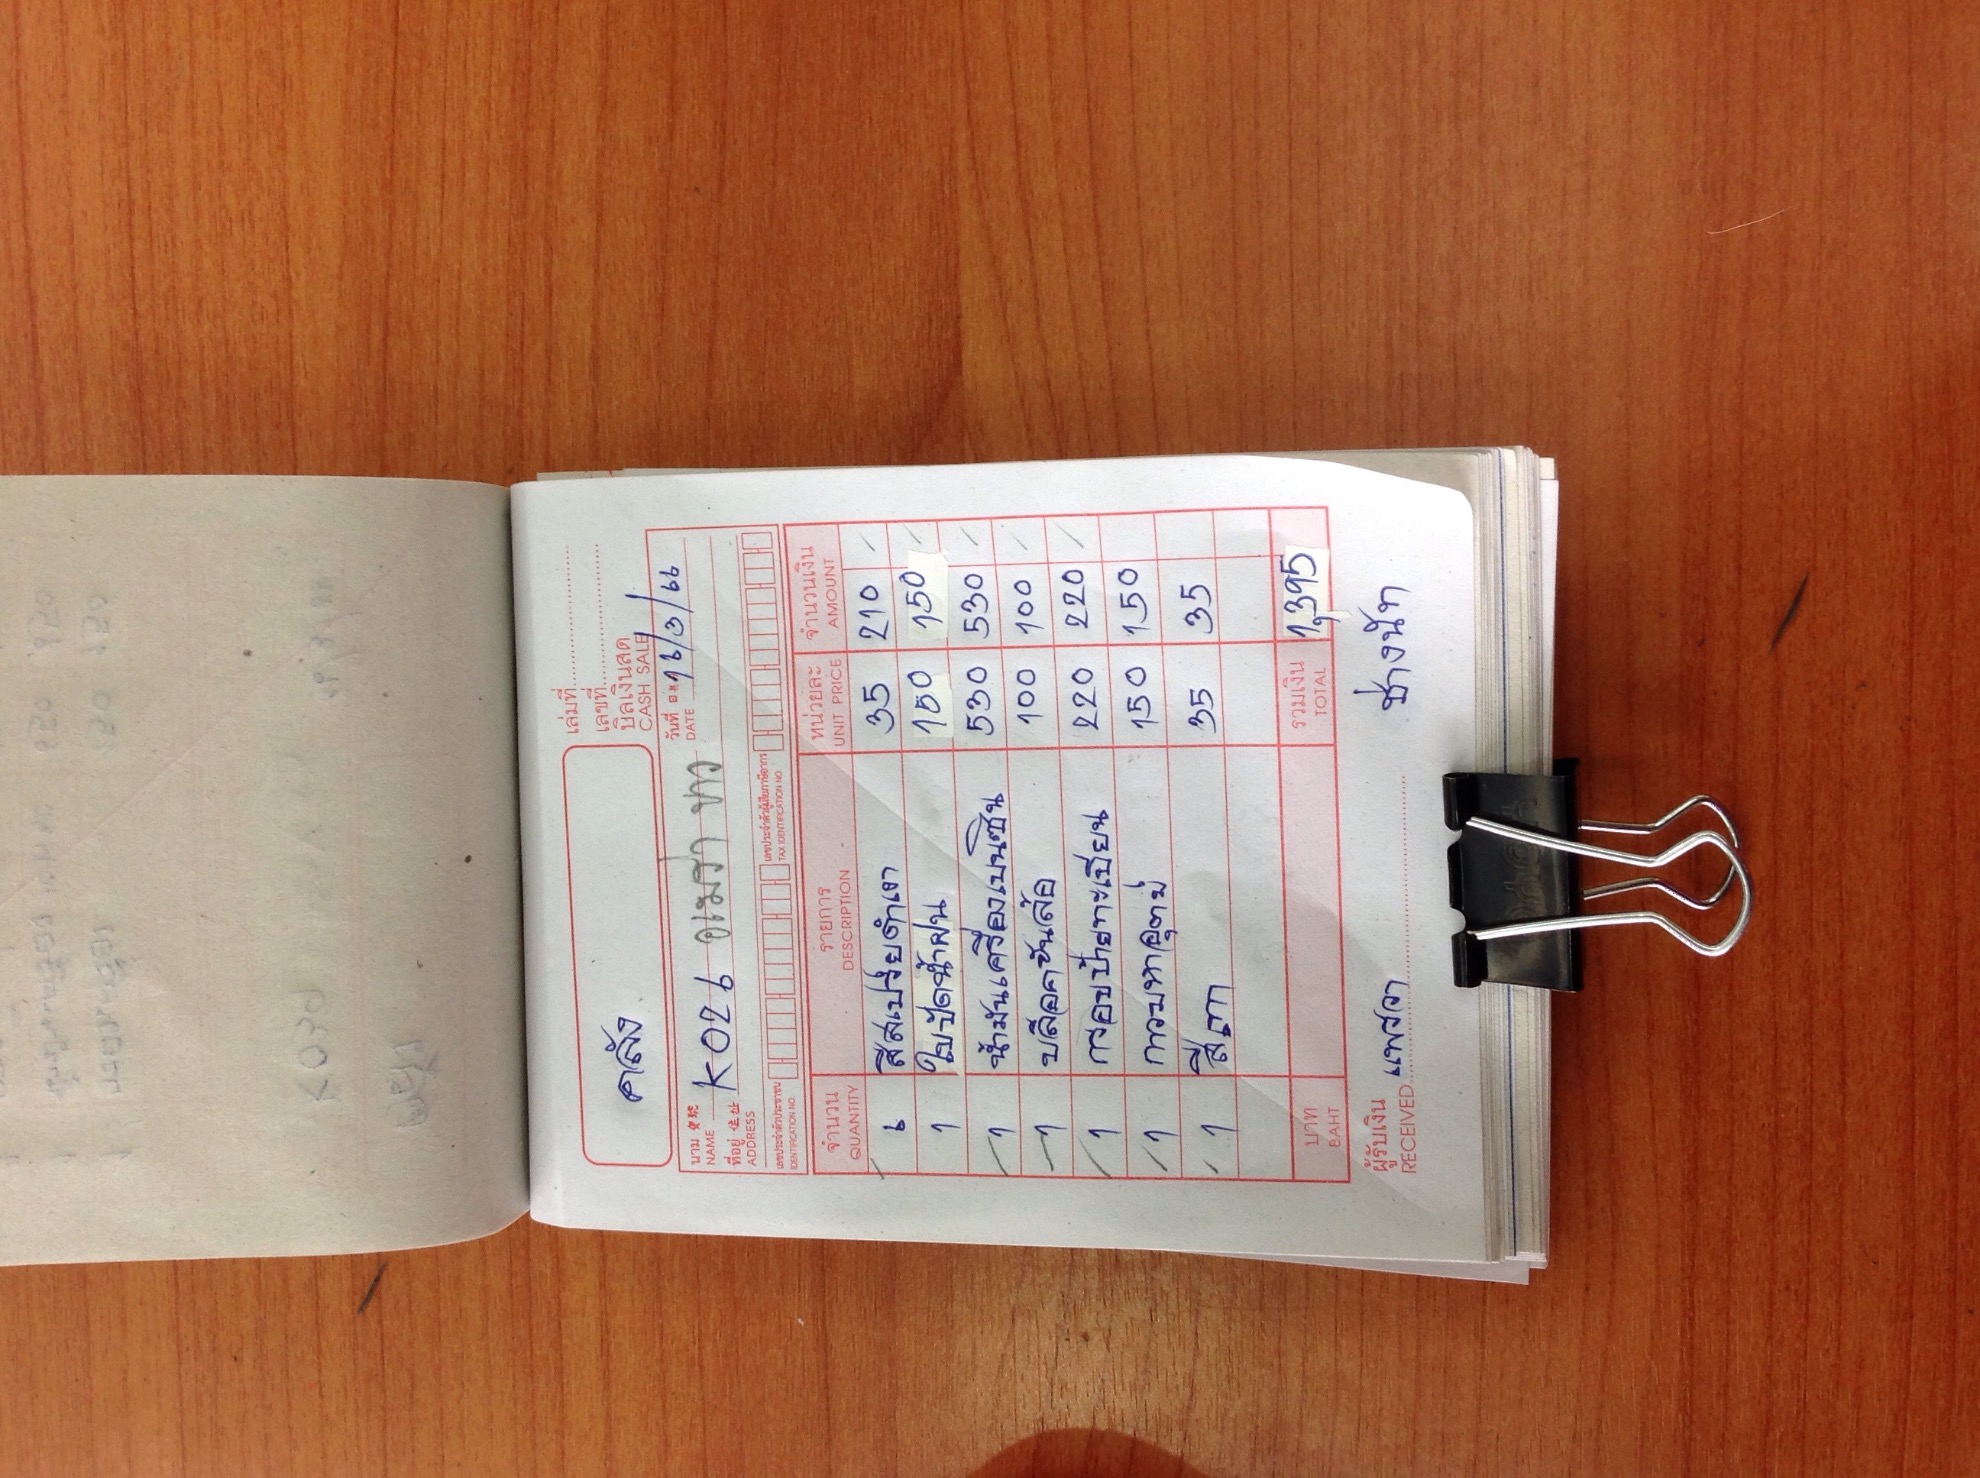 คลัง
เล่มที่
เลขที่
บิลเงินสด
CASH SALE
นาม
NAME
K026
วันที่ 16/3/66
DATE
ที่อยู่
ADDRESS
เลขประจำตัวประชาชน
IDENTIFICATION NO.
เลขประจำตัวผู้เสียภาษีอากร
TAX IDENTIFICATION NO.
จำนวน รายการ หน่วยละ จำนวนเงิน
QUANTITY DESCRIPTION UNIT PRICE AMOUNT
๖ สีสเปรย์ดำเงา 35 210
1 ใบปัดน้ำฝน 150 150
1 น้ำมันเครื่องเบนซิน 530 530
1 บล๊อคขันล้อ 100 100
1 กรอบป้ายทะเบียน 220 220
1 กาวมหาอุตม์ 150 150
1 สีเทา 35 35
บาท รวมเงิน 1,395
BAHT TOTAL
ผู้รับเงิน แพรวา ช่างนัท
RECEIVED
K039